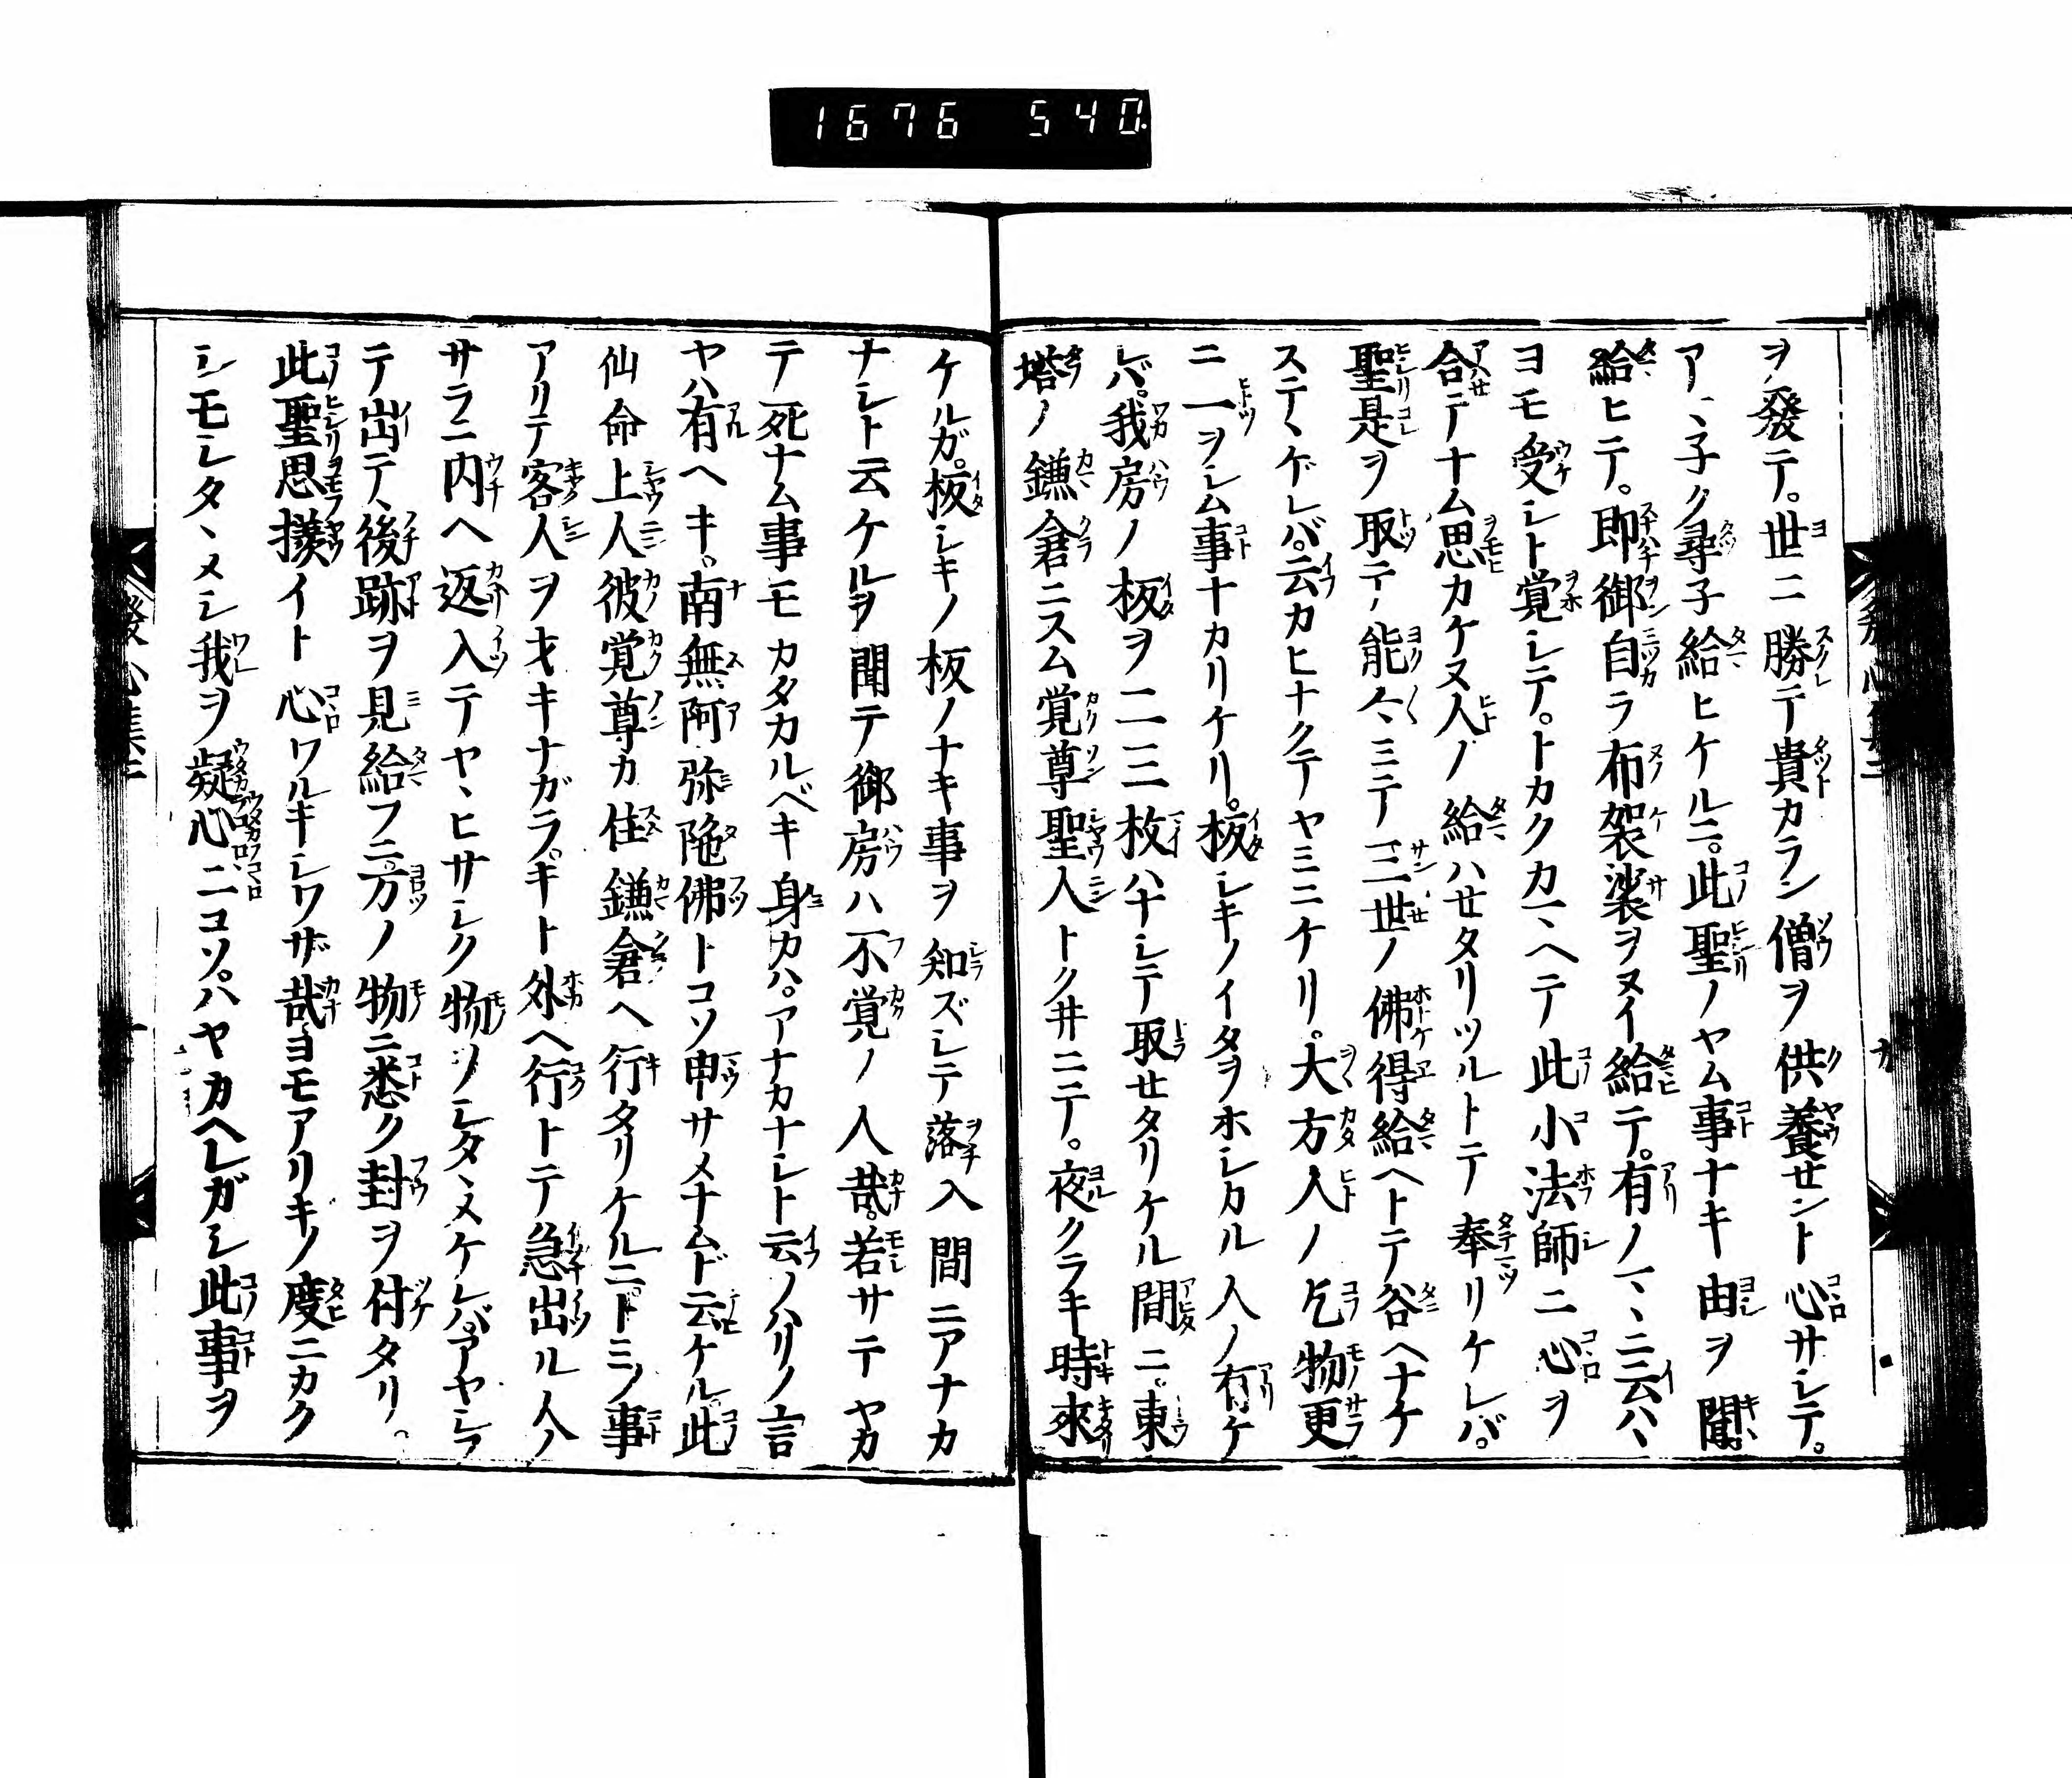 1676 540
ヲ發テ。世ニ勝テ貴カラン僧ヲ供養セント心サシテ。
アヽ子ク尋子給ヒケルニ。此聖ノヤム事ナキ由ヲ聞。
給ヒテ。即御自ラ布袈裟ヲヌイ給テ。有ノマヽニ云ハヽ
ヨモ受シト覚シテ。トカクカマヘテ此小法師ニ心ヲ
合テナム思カケヌ人ノ給ハセタリツルトテ奉リケレバ。
聖是ヲ取テ能々ミテ三世ノ佛得給ヘトテ谷ヘナケ
ステヽゲレバ。云カヒナクテヤミニケリ。大方人ノ乞物更
ニ一ヲシム事ナカリケリ。板シキノイタヲホシカル人ノ有ケ
レバ。我房ノ板ヲ二三枚ハナシテ取セタリケル間ニ。東
塔ノ鎌倉ニスム覚尊聖人トクヰニテ。夜クラキ時來
ケルガ。板シキノ板ノナキ事ヲ知ズシテ落入間ニアナカ
ナシト云ケルヲ聞テ御房ハ不覚ノ人哉。若サテヤカ
テ死ナム事モカタカルベキ身カハ。アナカナシト云ノハリノ言
ヤハ有ヘキ。南無阿弥陁佛トコソ申サメナムド云ケル。此
仙命上人彼覚尊カ住鎌倉ヘ行タリケルニ。トミノ事
アリテ客人ヲオキナガラ。キト外ヘ行トテ急出ル人ノ
サラニ内ヘ返入テヤヽヒサシク物ノシタヽメケレバ。アヤシラ
テ出テ後跡ヲ見給フニ万ノ物ニ悉ク封ヲ付タリ。
此聖思様イト心ワルキシワザ哉ヨモアリキノ度ニカク
シモシタヽメシ我ヲ疑心ニコソ。ハヤカヘレガシ此事ヲ